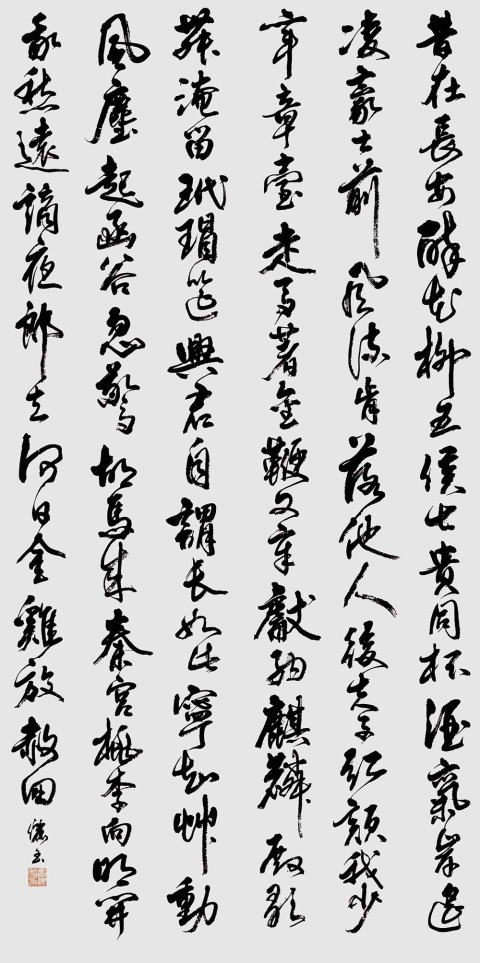 昔在長安醉花柳五侯七貴同杯酒氣岸遙
凌豪士前風流肯落他人後夫子紅顏我少
年章臺走馬著金鞭文章獻納麒麟殿歌
舞淹留玳瑁筵與君自謂長如此寧知艸動
風塵起函谷忽驚胡馬來秦宮桃李向明開
我愁遠謫夜郎去何日金雞放赦回